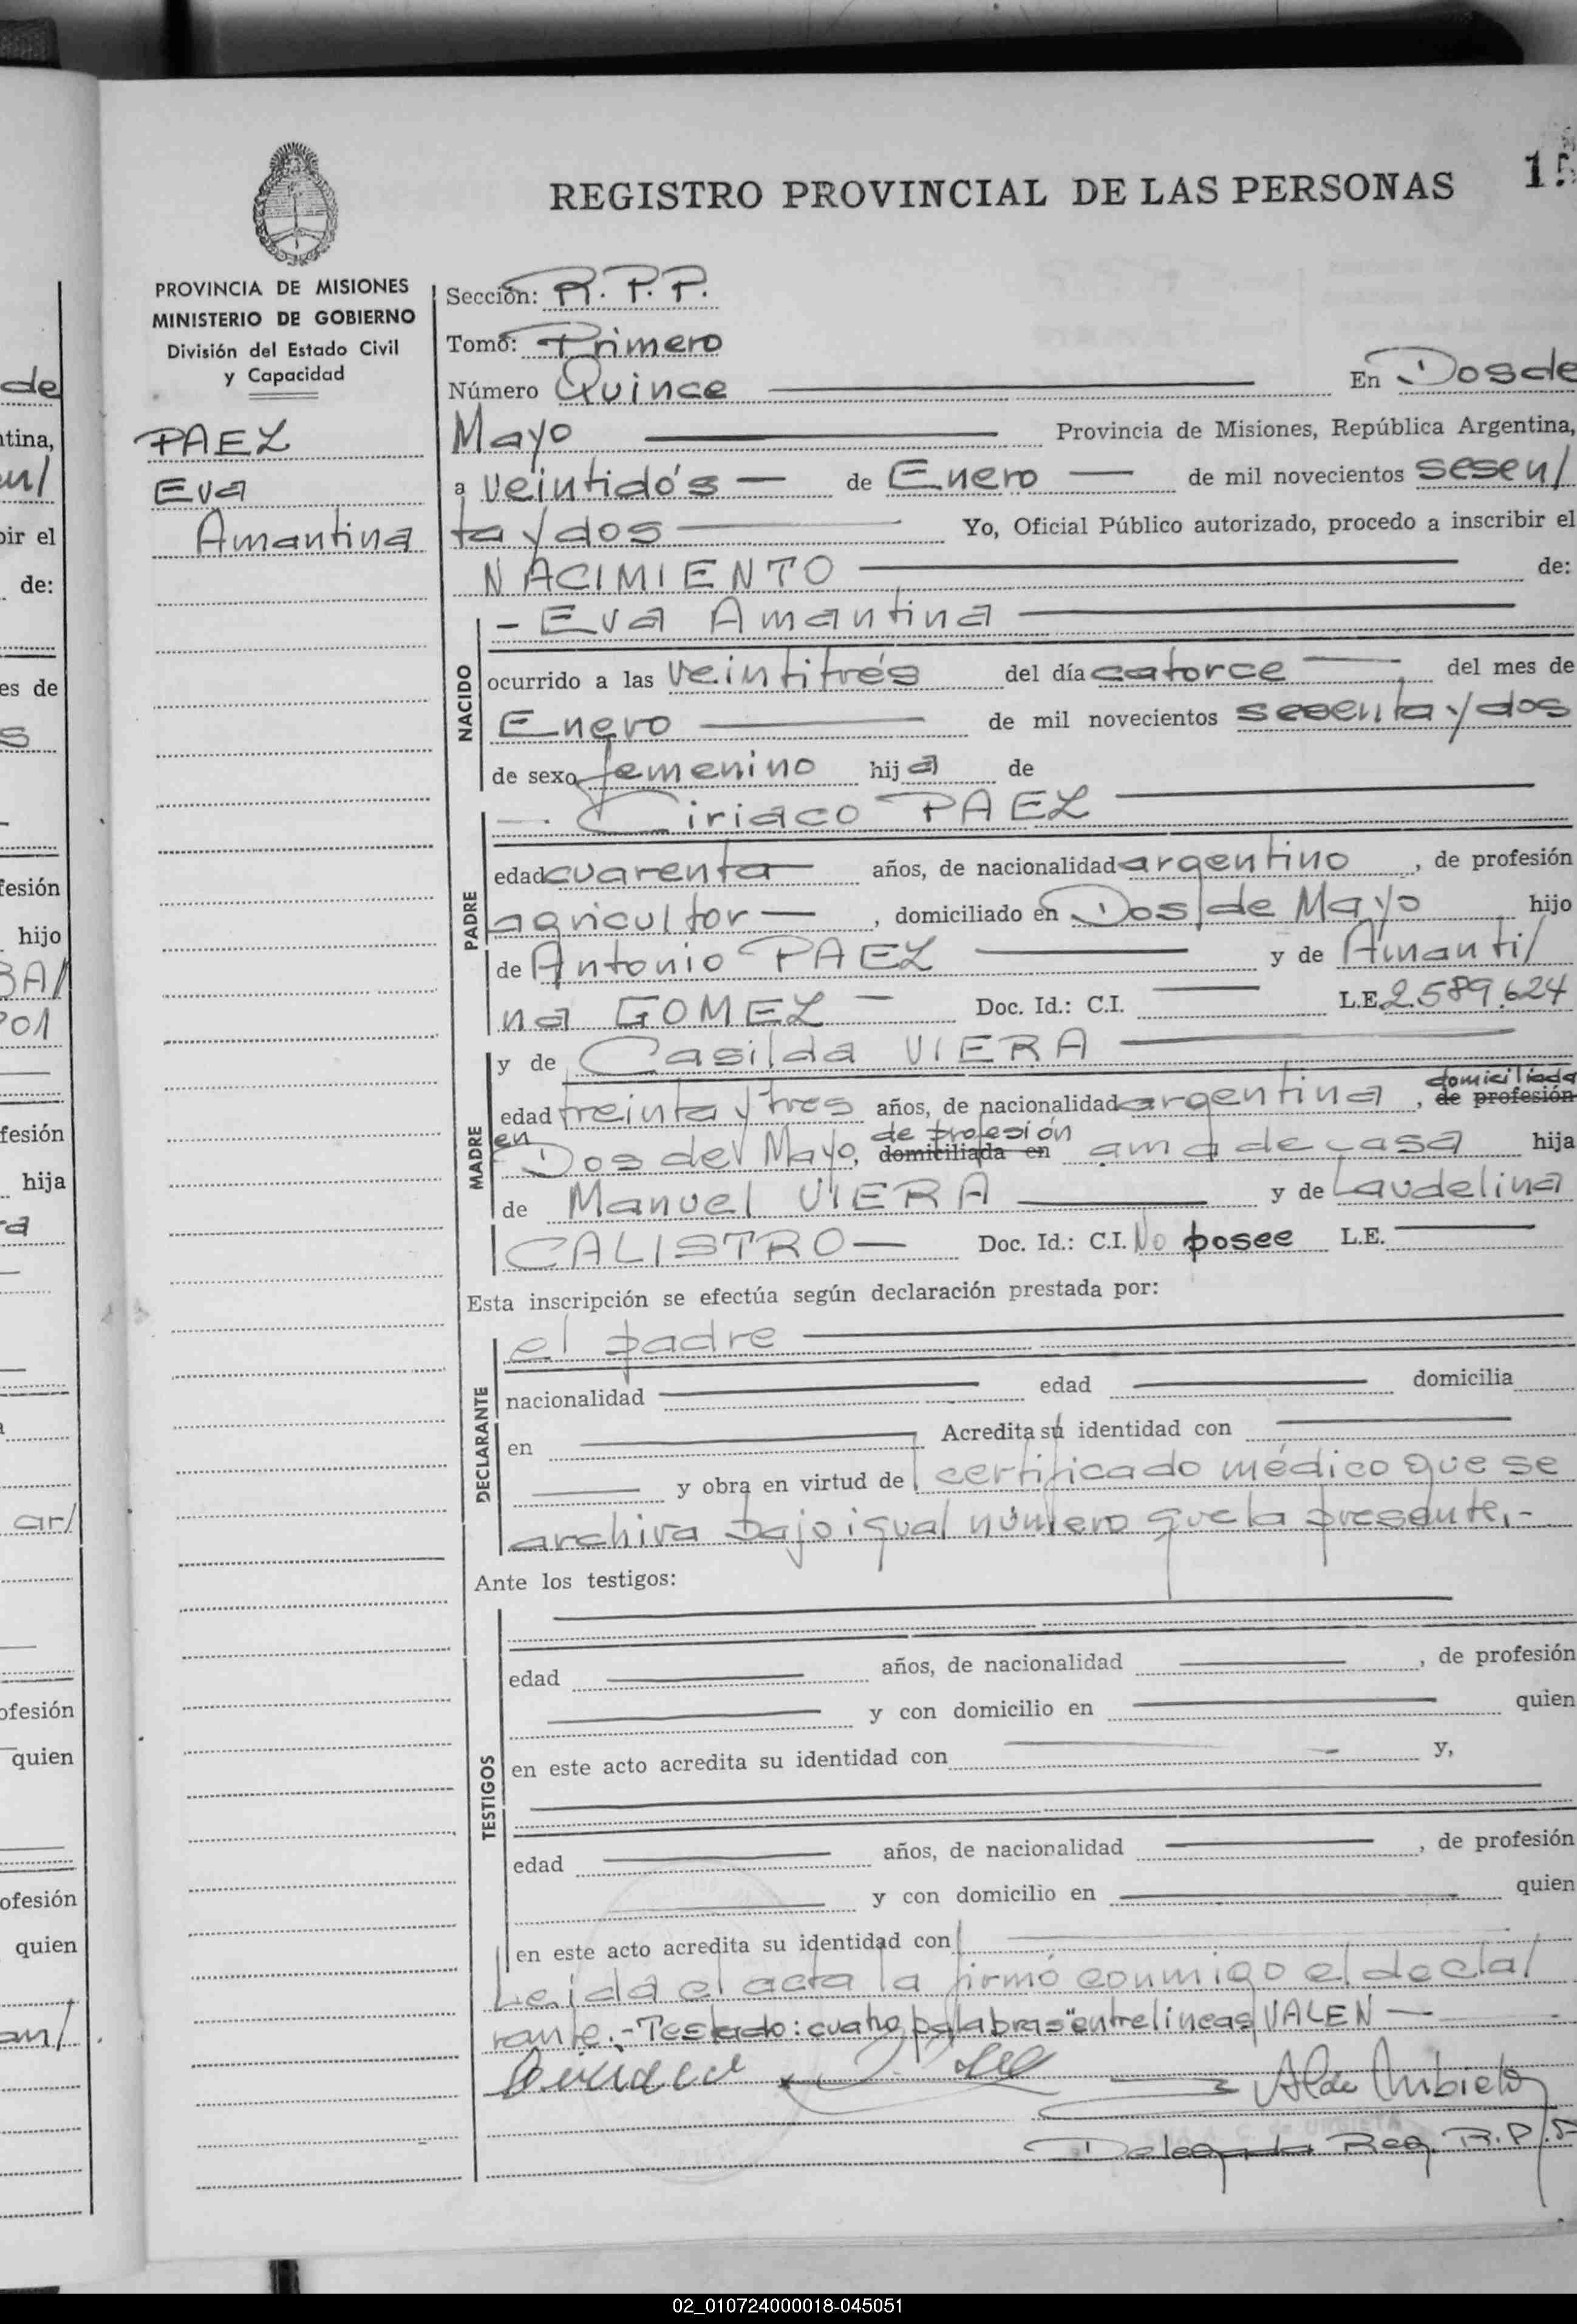 REGISTRO PROVINCIAL DE LAS PERSONAS
PROVINCIA DE MISIONES
MINISTERIO DE GOBIERNO
División del Estado Civil
y Capacidad
PAEZ
Eva
Amantina
Sección: R. P. P.
Tomo: Primero
Número Quince En Dos de
Mayo Provincia de Misiones, República Argentina,
a veintidós — de Enero — de mil novecientos sesen/
ta y dos Yo, Oficial Público autorizado, procedo a inscribir el
NACIMIENTO de:
- Eva Amantina
NACIDO
ocurrido a las veintitrés del día catorce — del mes de
Enero de mil novecientos sesenta y dos
de sexo femenino hija de
Ciriaco PAEZ
PADRE
edad cuarenta años, de nacionalidad argentino, de profesión
agricultor —, domiciliado en Dos de Mayo hijo
de Antonio PAEZ y de Amanti/
na GOMEZ — Doc. Id.: C.I. L.E. 2.589.624
y de Casilda VIERA
MADRE
domiciliada
edad treinta y tres años, de nacionalidad argentina, de profesión
en de profesión
Dos de Mayo, domiciliada en ama de casa hija
de Manuel VIERA y de Laudelina
CALISTRO — Doc. Id.: C.I. No posee L.E.
Esta inscripción se efectúa según declaración prestada por:
el padre
DECLARANTE
nacionalidad edad domicilia
en Acredita su identidad con
y obra en virtud de certificado médico que se
archiva bajo igual número que la presente.-
Ante los testigos:
TESTIGOS
edad años, de nacionalidad , de profesión
y con domicilio en quien
en este acto acredita su identidad con y,
edad años, de nacionalidad , de profesión
y con domicilio en quien
en este acto acredita su identidad con
Leida el acta la firmó conmigo el decla/
rante.- Testado: cuatro palabras "entrelineas VALEN —
Delegada Reg. R.P.P.
02_010724000018-045051